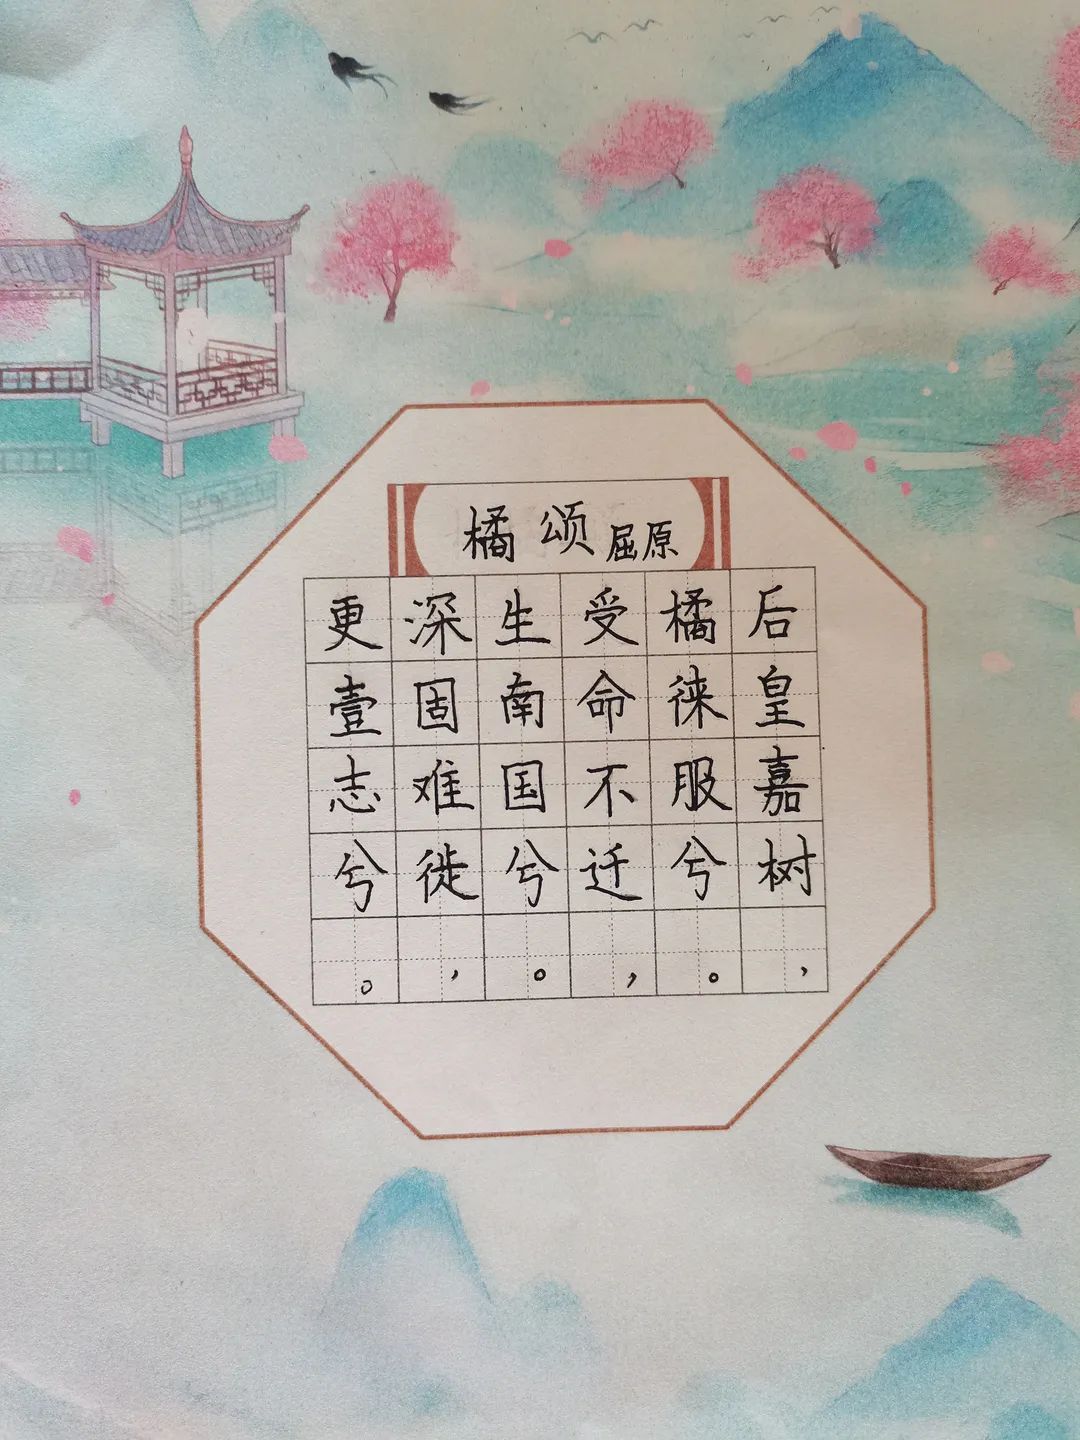 橘颂 屈原
后皇嘉树，
橘徕服兮。
受命不迁，
生南国兮。
深固难徙，
更壹志兮。